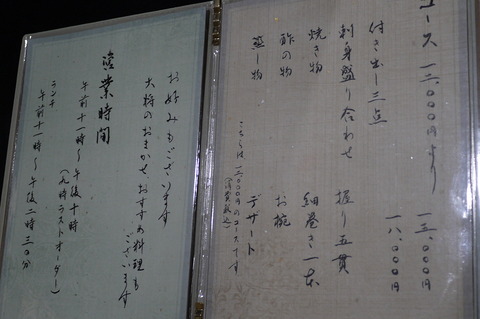 コース 一二、〇〇〇円より
一五、〇〇〇円
一八、〇〇〇円
付き出し三点
刺身盛り合わせ
焼き物
酢の物
蒸し物
握り五貫
細巻き一本
お椀
デザート
こちらは一二、〇〇〇円のコースです
お好みもございます
大将のおまかせおすすめ料理も
ございます
営業時間
午前十一時〜午後十時
(九時ラストオーダー)
ランチ
午前十一時〜午後二時三〇分